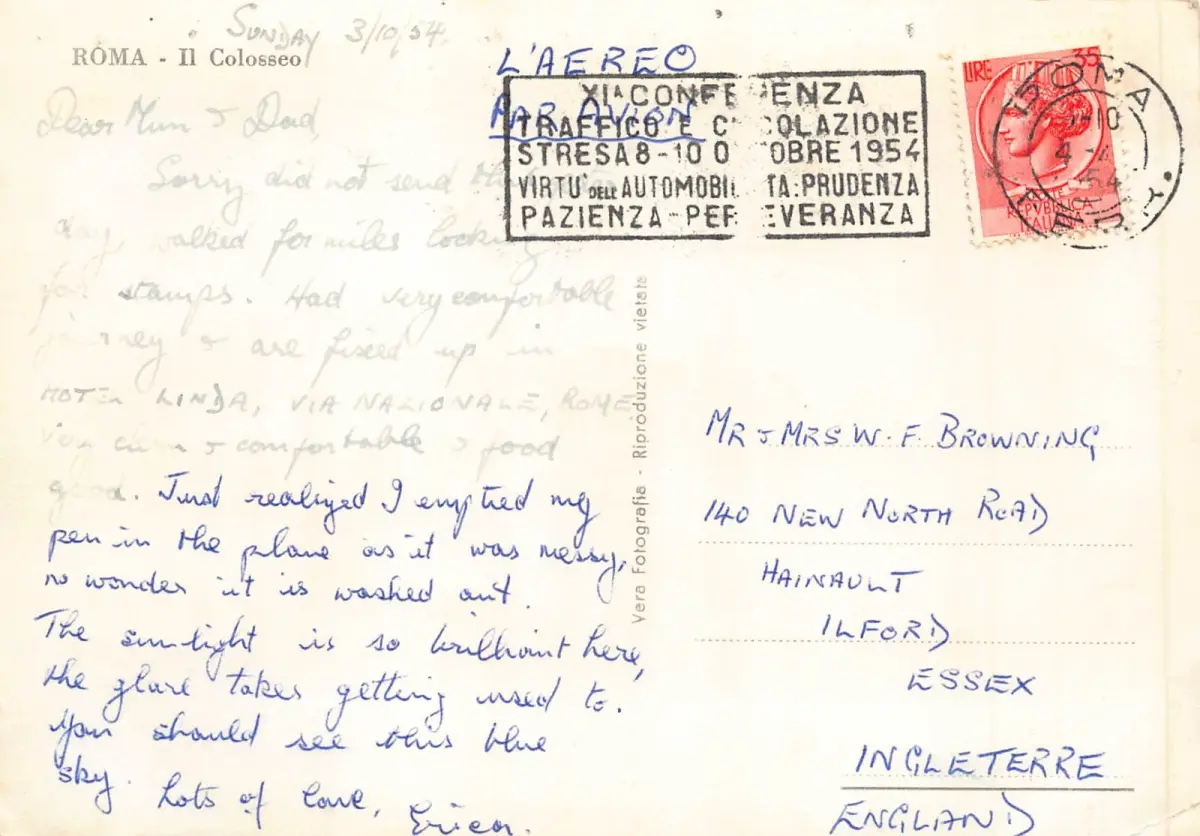 SUNDAY 3/10/54.
ROMA - Il Colosseo
L'AEREO
PAR AVION
XIa CONFE ENZA
TRAFFICO E C OLAZIONE
STRESA 8-10 O TOBRE 1954
VIRTU' DELL AUTOMOBIL TA: PRUDENZA
PAZIENZA - PER EVERANZA
LIRE 35
ROMA
4
54
REPVBBLICA
ITALIANA
Dear Mum & Dad,
Sorry did not send
day, walked for miles looking
for stamps. Had very comfortable
journey & are fixed up in
HOTEL LINDA, VIA NAZIONALE, ROME
Very clean & comfortable & food
good. Just realized I emptied my
pen in the plane as it was messy,
no wonder it is washed out.
The sunlight is so brilliant here,
the glare takes getting used to.
You should see this blue
sky. Lots of love,
Erica.
Vera Fotografia - Riproduzione vietata
MR & MRS W. F. BROWNING
140 NEW NORTH ROAD
HAINAULT
ILFORD
ESSEX
INGLETERRE
ENGLAND